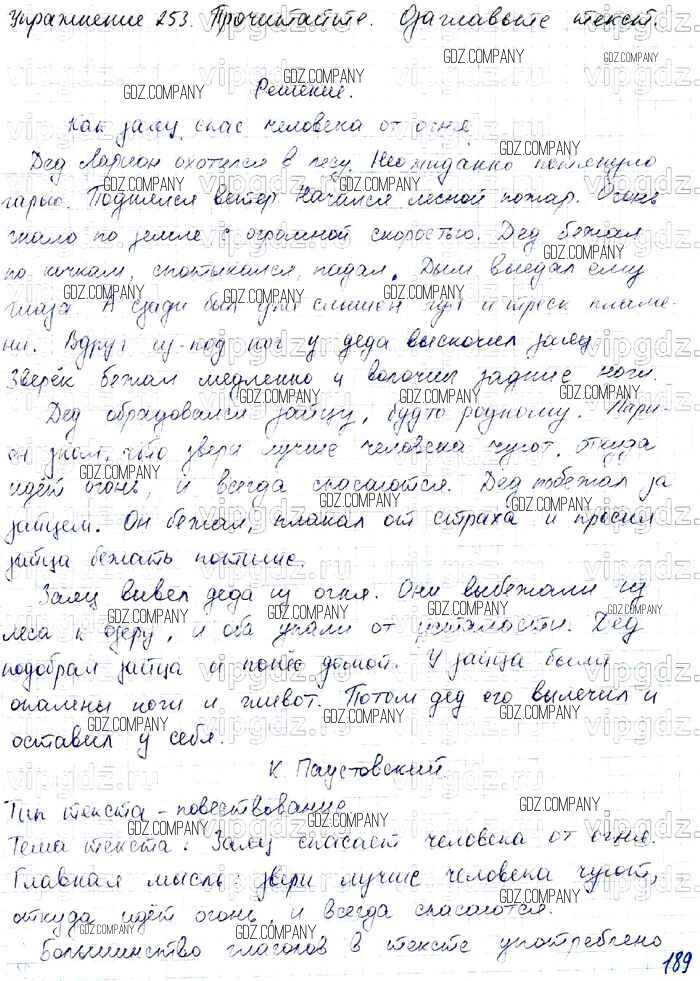 Упражнение 253. Прочитайте. Озаглавьте текст.
Решение.
Как заяц спас человека от огня.
Дед Ларион охотился в лесу. Неожиданно потянуло
гарью. Поднялся ветер Начался лесной пожар. Огонь
гнало по земле с огромной скоростью. Дед бежал
по кочкам, спотыкался, падал. Дым выедал ему
глаза. А сзади был уже слышен гул и треск пламе-
ни. Вдруг из-под ног у деда выскочил заяц.
Зверёк бежал медленно и волочил задние ноги.
Дед обрадовался зайцу, будто родному. Лари-
он знал, что звери лучше человека чуют, откуда
идёт огонь, и всегда спасаются. Дед побежал за
зайцем. Он бежал, плакал от страха и просил
зайца бежать потише.
Заяц вывел деда из огня. Они выбежали из
леса к озеру, и оба упали от усталости. Дед
подобрал зайца и понёс домой. У зайца были
опалены ноги и живот. Потом дед его вылечил и
оставил у себя.
К. Паустовский
Тип текста - повествование
Тема текста: Заяц спасает человека от огня.
Главная мысль: звери лучше человека чуют,
откуда идёт огонь, и всегда спасаются.
Большинство глаголов в тексте употреблено
189
GDZ.COMPANY
vipgdz.ru